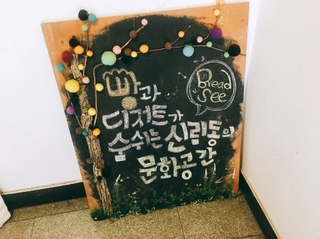 빵과
디저트가
숨쉬는 신림동의
문화공간
Bread
See